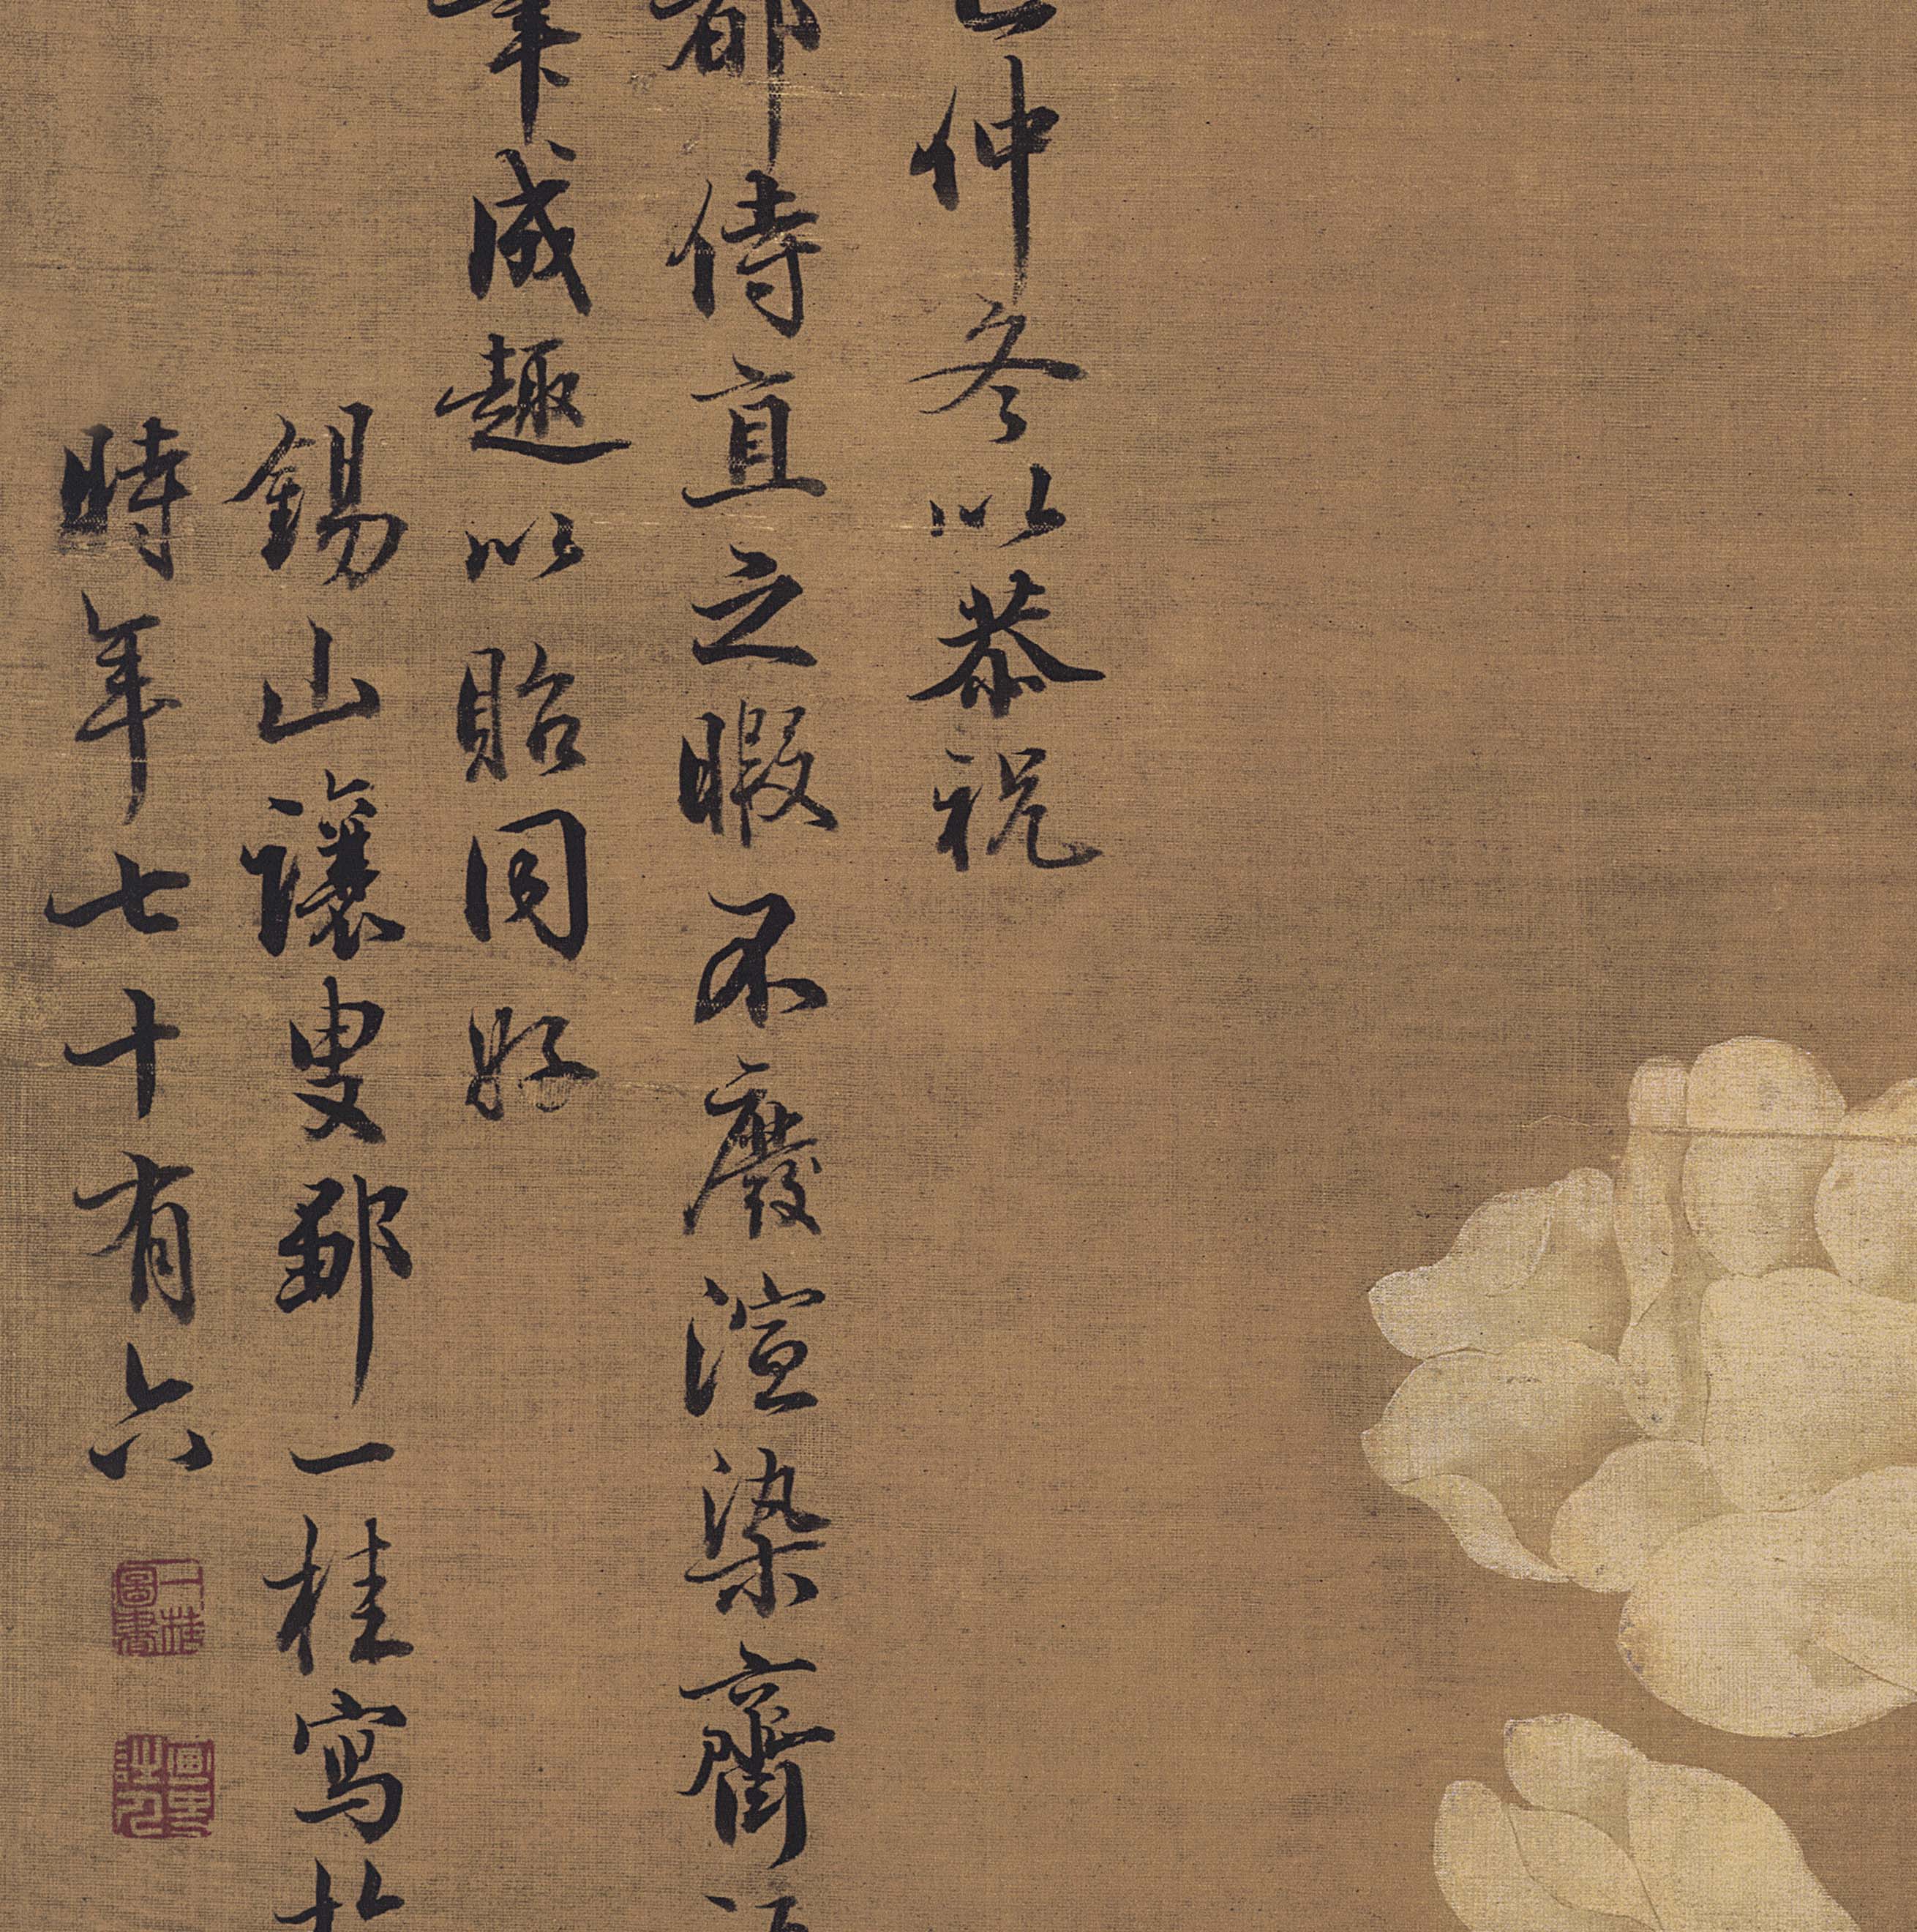 仲冬以恭祝
都侍直之暇不廢渲染齋
筆成趣以貽同好
錫山讓叟鄒一桂寫於
時年七十有六
一桂
圖書